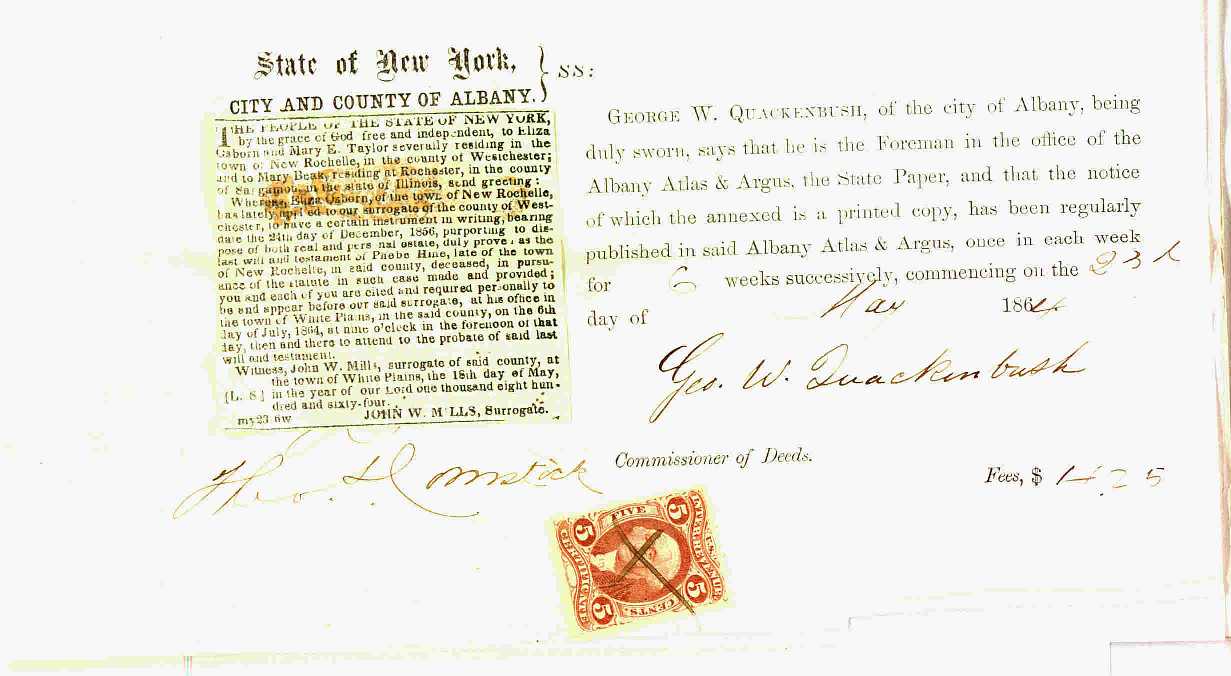 State of New York, } ss:
CITY AND COUNTY OF ALBANY.
THE PEOPLE OF THE STATE OF NEW YORK,
by the grace of God free and independent, to Eliza
Osborn and Mary E. Taylor severally residing in the
town of New Rochelle, in the county of Westchester;
and to Mary Beak, residing at Rochester, in the county
of Sangamob, in the state of Illinois, send greeting:
Whereas, Eliza Osborn, of the town of New Rochelle,
has lately applied to our surrogate of the county of West-
chester, to have a certain instrument in writing, bearing
date the 24th day of December, 1856, purporting to dis-
pose of both real and personal estate, duly proved as the
last will and testament of Phebe Hine, late of the town
of New Rochelle, in said county, deceased, in pursu-
ance of the statute in such case made and provided;
you and each of you are cited and required personally to
be and appear before our said surrogate, at his office in
the town of White Plains, in the said county, on the 6th
day of July, 1864, at nine o'clock in the forenoon of that
day, then and there to attend to the probate of said last
will and testament.
Witness, John W. Mills, surrogate of said county, at
the town of White Plains, the 18th day of May,
[L. S] in the year of our Lord one thousand eight hun-
dred and sixty-four.
my23 6w JOHN W. MILLS, Surrogate.
GEORGE W. QUACKENBUSH, of the city of Albany, being
duly sworn, says that he is the Foreman in the office of the
Albany Atlas & Argus, the State Paper, and that the notice
of which the annexed is a printed copy, has been regularly
published in said Albany Atlas & Argus, once in each week
for 6 weeks successively, commencing on the 23d
day of May 1864
Geo. W. Quackenbush
Theo. D. Comstick
Commissioner of Deeds.
Fees, $ 4.25
FIVE
5 5
5 5
CENTS.